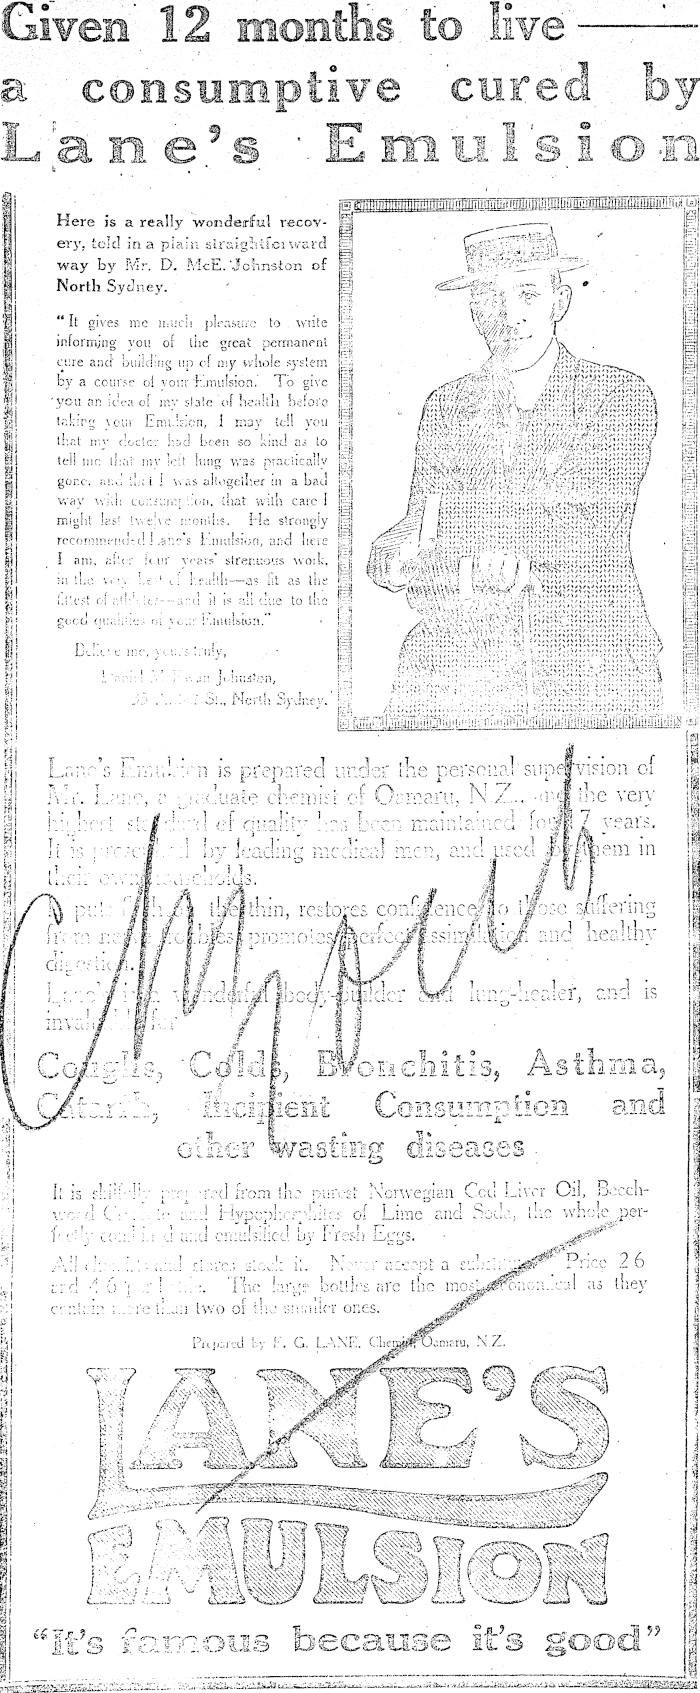 Given 12 months to live
a consumptive cured by
Lane's Emulsion
Here is a really wonderful recov-
ery, told in a plain straightforward
way by Mr. D. McE. Johnston of
North Sydney.
"It gives me much pleasure to write
informing you of the great permanent
cure and building up of my whole system
by a course of your Emulsion. To give
you an idea of my state of health before
taking your Emulsion, I may tell you
that my doctor had been so kind as to
tell me that my left lung was practically
gone, and that I was altogether in a bad
way with consumption, that with care I
might last twelve months. He strongly
recommended Lane's Emulsion, and here
I am, after four years' strenuous work,
in the very best of health—as fit as the
fittest of athletes—and it is all due to the
good qualities of your Emulsion."
Believe me, yours truly,
Johnston,
St., North Sydney.
Lane's Emulsion is prepared under the personal supervision of
Mr. Lane, a graduate chemist of Oamaru, N.Z., and the very
highest standard of quality has been maintained for years.
It is prescribed by leading medical men, and used by them in
their own households.
the thin, restores confidence to those suffering
from nerve troubles, promotes perfect assimilation and healthy
digestion.
Lane's is a wonderful body-builder and lung-healer, and is
invaluable for
Coughs, Colds, Bronchitis, Asthma,
Catarrh, Incipient Consumption and
other wasting diseases
It is skilfully prepared from the purest Norwegian Cod Liver Oil, Beech-
wood Creosote and Hypophosphites of Lime and Soda, the whole per-
fectly combined and emulsified by Fresh Eggs.
All chemists and stores stock it. Never accept a substitute. Price 2/6
and 4/6 per bottle. The large bottles are the most economical as they
contain more than two of the smaller ones.
Prepared by E. G. LANE, Chemist, Oamaru, N.Z.
LANE'S
EMULSION
"It's famous because it's good"